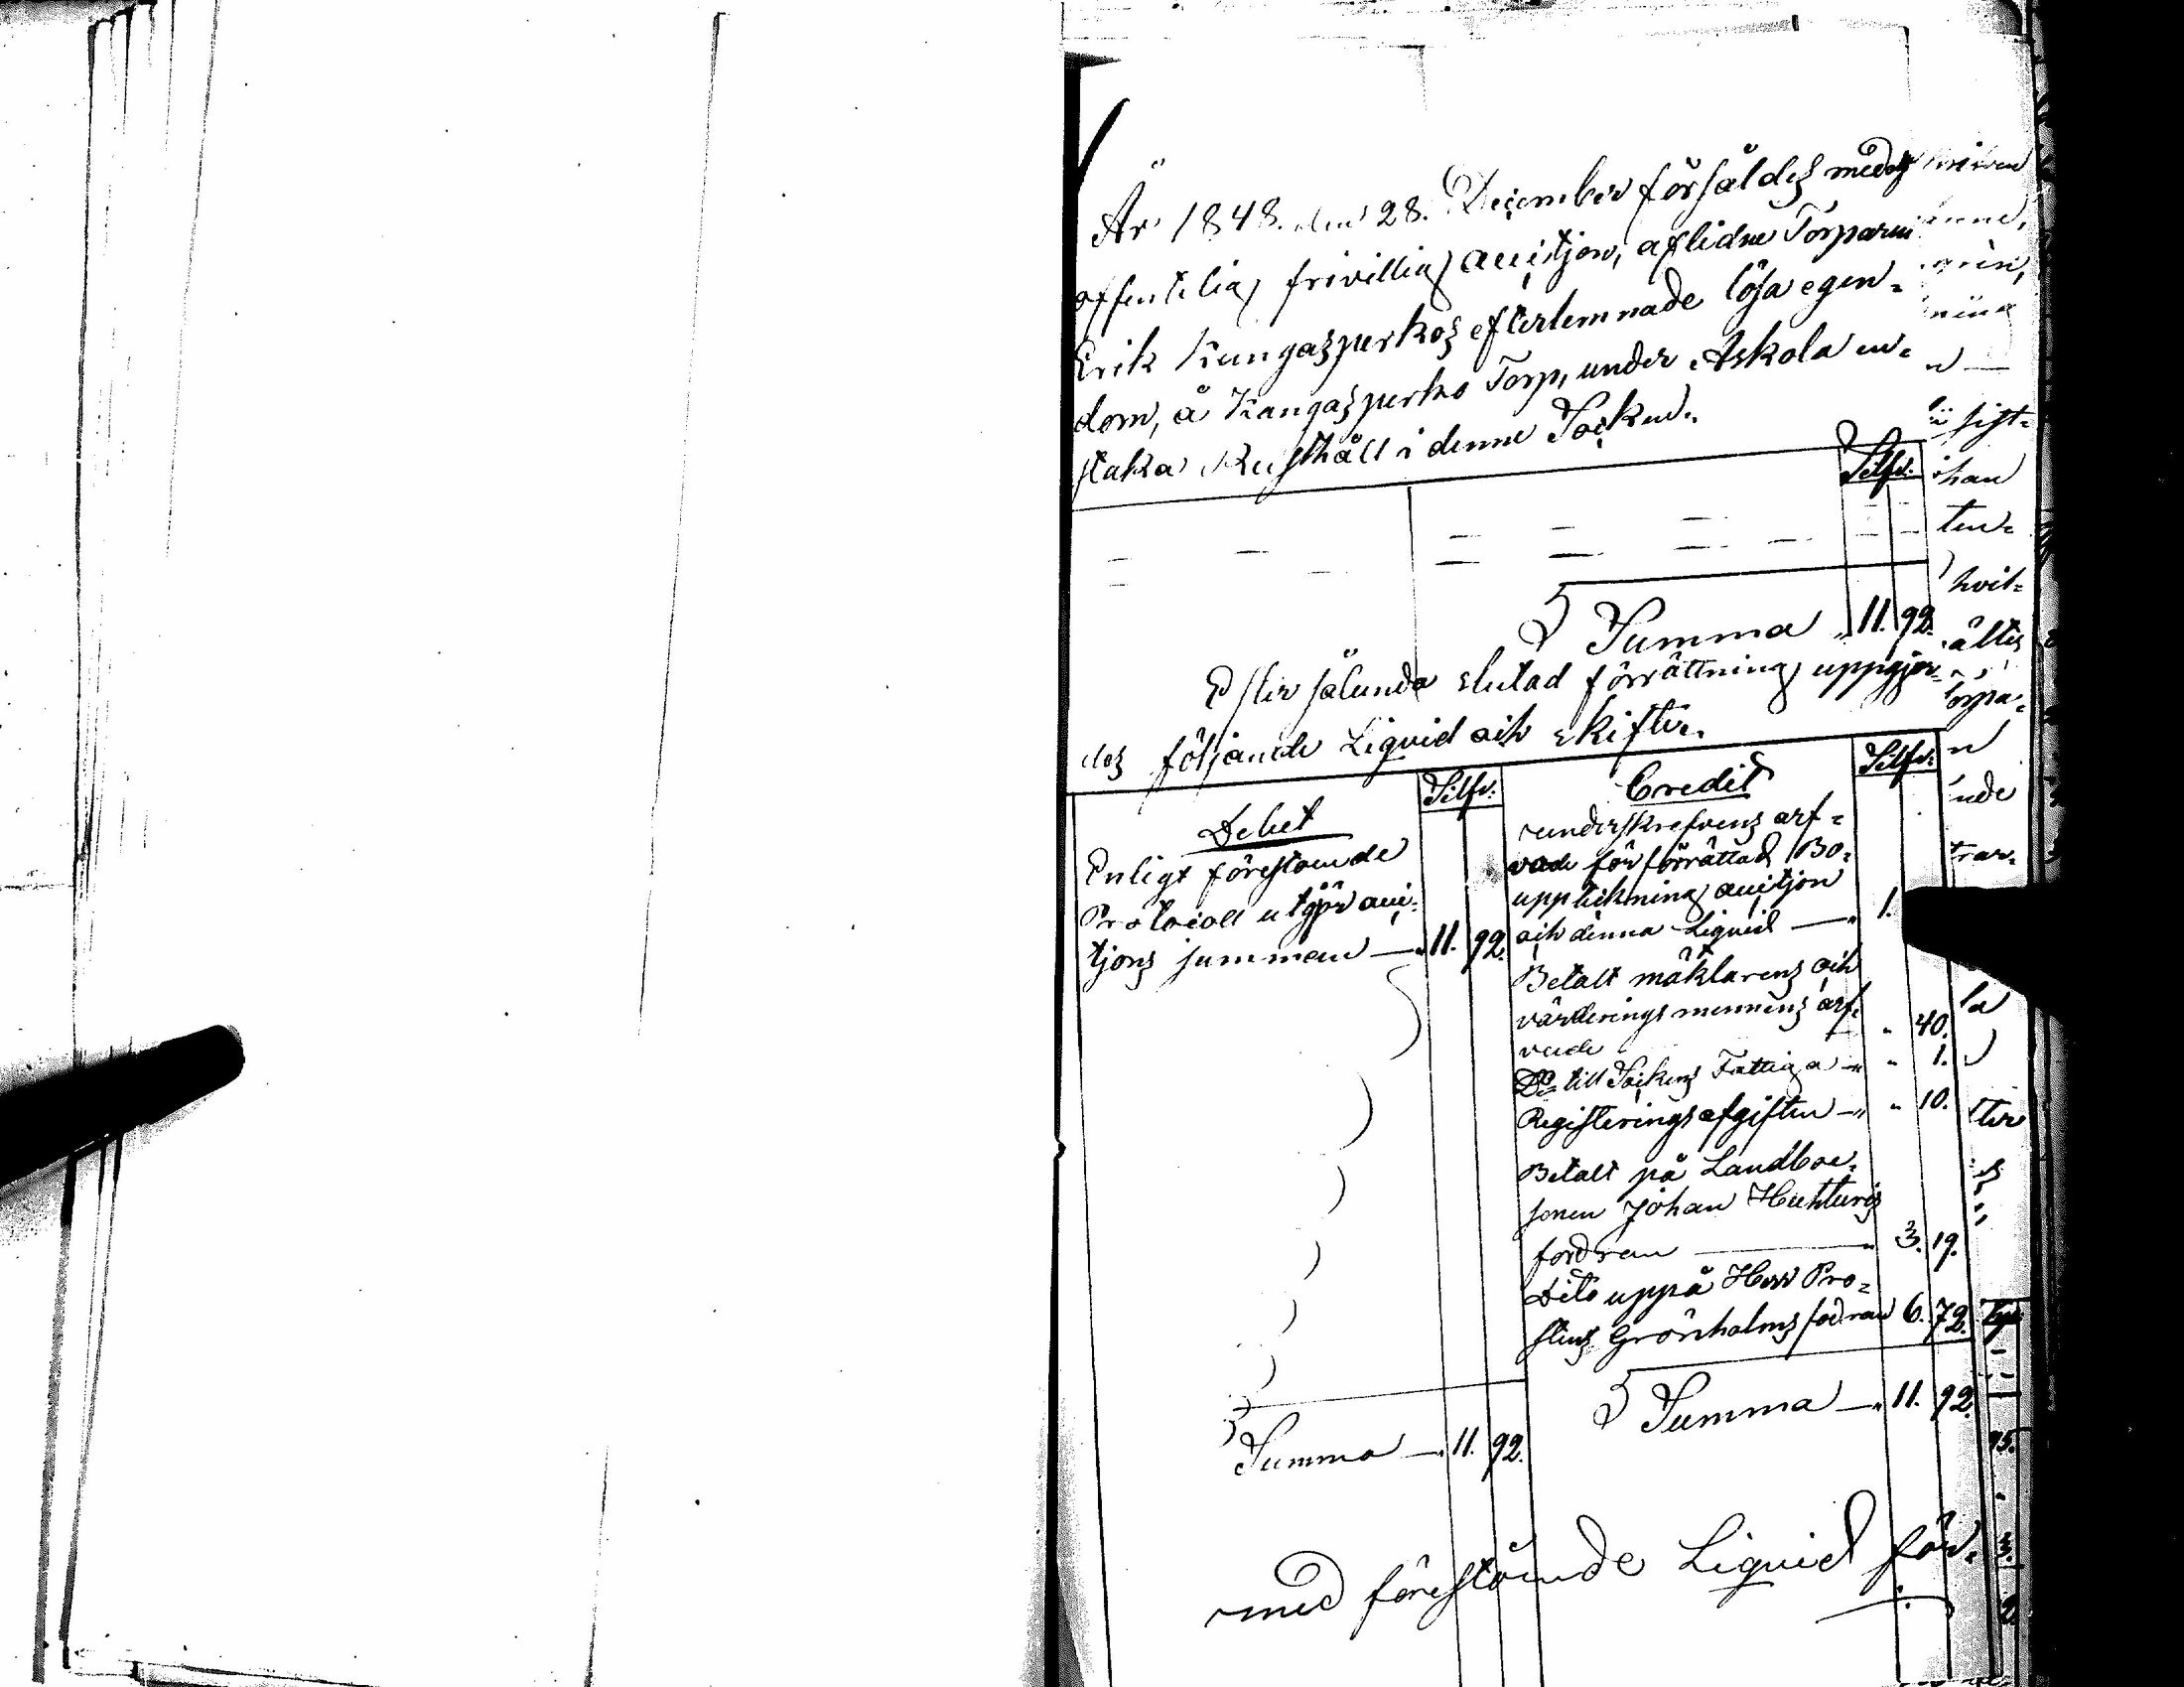 År 1848. den 28. December försåldes medelst
offentelig frivillig auctjon, aflidne Torparen
Erik Kangaspurkos efterlemnade lösa egen=
dom, å Kangaspurko Torp, under Askola en=
staka Rusthåll i denne Socken.
Silfv:
Summa 11. 92.
Efter sålunda slutad förrättning uppgjor=
des följande Liquid och skifte.
Debet Silfv:
Enligt förestående
Protocoll utgör auc=
tjons summan — 11. 92.
Summa — 11. 92.
Credit Silfv:
underskrefvens arf=
vode för förrättad Bo=
uppteckning auctjon
och denna Liquid — 1.
Betalt mäklarens och
värderingsmennens arf=
vode " 40.
Do till Sockens Fattiga — " 1.
Registeringsafgiften — " 10.
Betalt på Landboe=
sonen Johan Huhturis
fordran — 3. 19.
Dito uppå Herr Pro=
stens Grönholms fodran 6. 72.
Summa — 11. 92.
med förestående Liquid för=